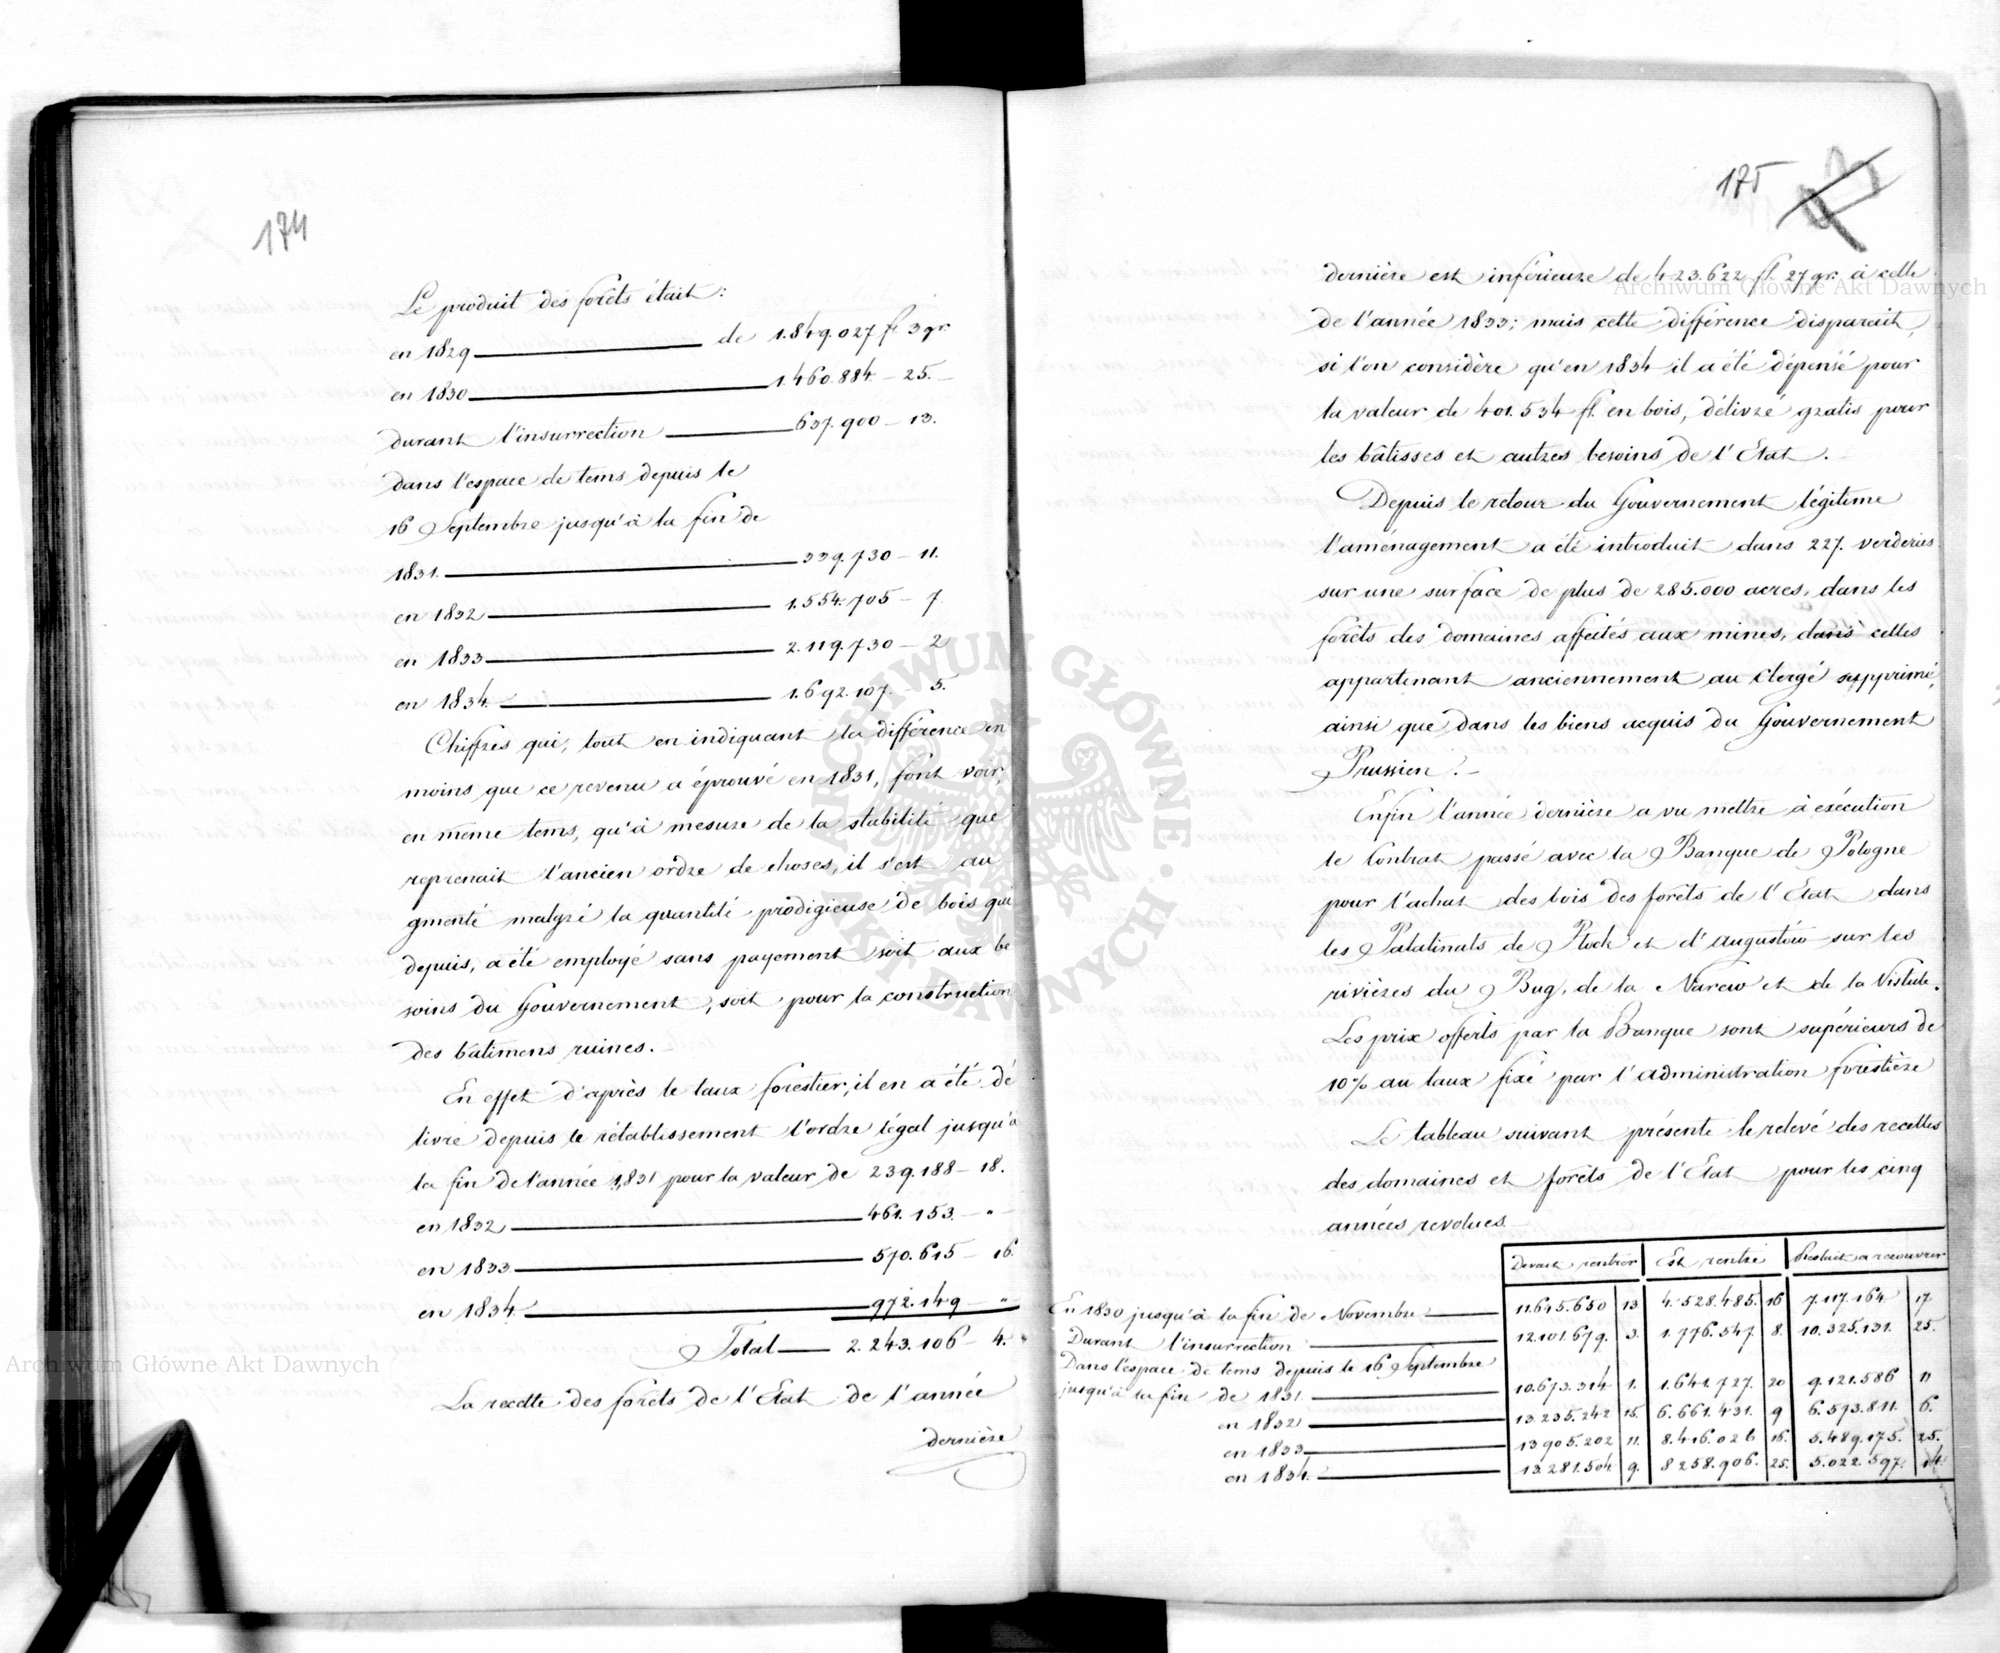 174
Le produit des forêts était:
en 1829 de 1.849.027 fl 3 gr.
en 1830 1.460.884 – 25. –
durant l'insurrection 637.900 – 13.
dans l'espace de tems depuis le
16 Septembre jusqu'à la fin de
1831. 339.730 – 11.
en 1832 1.554.705 – 7.
en 1833 2.119.730 – 2
en 1834. 1.692.107. – 5.
Chiffres qui, tout en indiquant la différence en
moins que ce revenu a éprouvé en 1831, font voir,
en même tems, qu'à mesure de la stabilité que
reprenait l'ancien ordre de choses, il s'est au
gmenté malgré la quantité prodigieuse de bois qui
depuis, a été employé sans payement soit aux be
soins du Gouvernement, soit pour la construction
des bâtimens ruines. –
En effet d'après le taux forestier, il en a été dé
livré depuis le rétablissement l'ordre légal jusqu'à
la fin de l'année 1831 pour la valeur de 239.188 – 18.
en 1832 461.153. – "
en 1833 570.615 – 16.
en 1834 972.149 – "
Total 2.243.106 – 4.
La recette des forêts de l'Etat de l'année
dernière
175
dernière est inférieure de 423.622 fl. 27 gr. à celle
de l'année 1833; mais cette différence disparait,
si l'on considère qu'en 1834 il a été dépensé pour
la valeur de 401.534 fl. en bois, délivré gratis pour
les bâtisses et autres besoins de l'Etat. –
Depuis le retour du Gouvernement légitime
l'aménagement a été introduit dans 227. verderies
sur une surface de plus de 285.000 acres, dans les
forêts des domaines affectés aux mines, dans celles
appartenant anciennement au Clergé supprimé,
ainsi que dans les biens acquis du Gouvernement
Prussien. –
Enfin l'année dernière a vu mettre à exécution
le Contrat passé avec la Banque de Pologne
pour l'achat des bois des forêts de l'Etat dans
les Palatinats de Plock et d'Augustów sur les
rivières du Bug, de la Narew et de la Vistule.
Les prix offerts par la Banque sont supérieurs de
10% au taux fixé par l'administration forestière
Le tableau suivant présente le relevé des recettes
des domaines et forêts de l'Etat pour les cinq
années revolues. –
Devait rentrer Est rentré Restait a recouvrer
En 1830 jusqu'à la fin de Novembre 11.645.650 13. 4.528.485. 16 7.117.164 17
Durant l'insurrection 12.101.679. 3. 1.776.547. 8. 10.325.131. 25.
Dans l'espace de tems depuis le 16 Septembre
jusqu'à la fin de 1831. 10.673.314 1. 1.641.727. 20 9.121.586 11
en 1832 13.235.242 15. 6.661.431. 9 6.573.811. 6.
en 1833 13.905.202 11. 8.416.026 16. 5.489.175. 25.
en 1834. 13.281.504 9. 8.258.906. 25. 5.022.597. 14.
ARCHIWUM GŁÓWNE AKT DAWNYCH
Archiwum Główne Akt Dawnych
Archiwum Główne Akt Dawnych